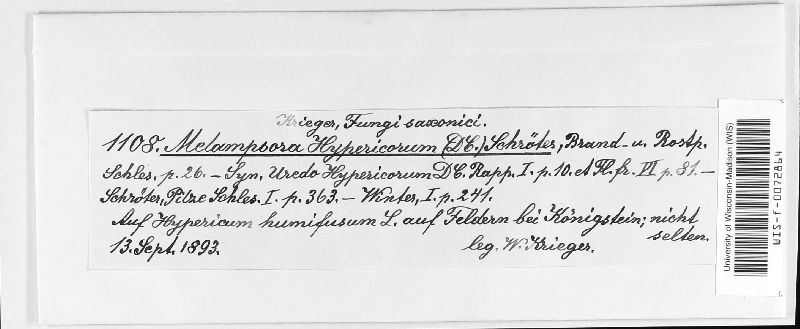 Krieger, Fungi saxonici.
1108. Melampsora Hypericorum (DC.) Schröter, Brand- u. Rostp.
Schles. p. 26. – Syn. Uredo Hypericorum DC. Rapp. I. p. 10. et Fl. fr. VI p. 81. –
Schröter, Pilze Schles. I. p. 363. – Winter, I. p. 241.
Auf Hypericum humifusum L. auf Feldern bei Königstein; nicht
selten.
13. Sept. 1893. leg. W. Krieger.
University of Wisconsin-Madison (WIS)
WIS-F-0072864